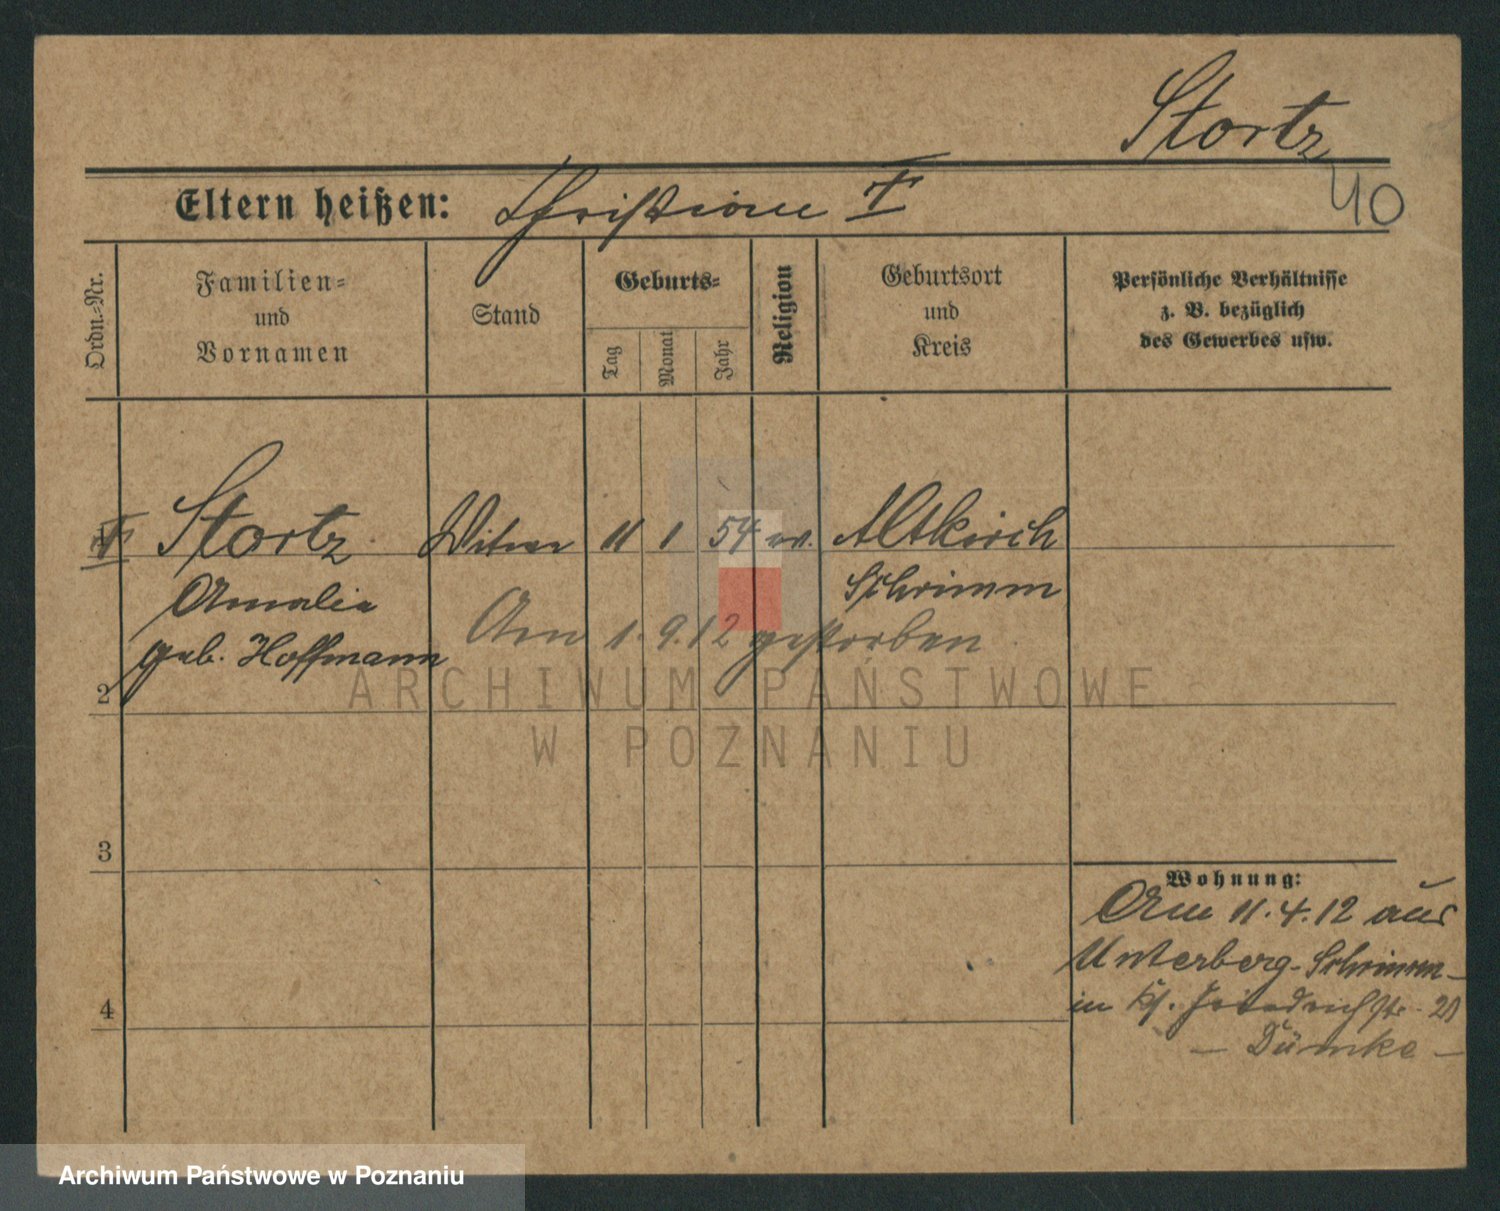 Stortz
40
Eltern heißen: Christiane T
Ordn.-Nr.
Familien-
und
Vornamen
Stand
Geburts-
Tag
Monat
Jahr
Religion
Geburtsort
und
Kreis
Persönliche Verhältnisse
z. B. bezüglich
des Gewerbes usw.
Stortz Witwe 11 1 54 ev. Altkirch
Amalia Schrimm
geb. Hoffmann Am 1.9.12 gestorben
2
ARCHIWUM PAŃSTWOWE
W POZNANIU
3
Wohnung:
Am 11.4.12 aus
Unterberg-Schrimm
in Friedrichstr. 20
4
- Dümke -
Archiwum Państwowe w Poznaniu